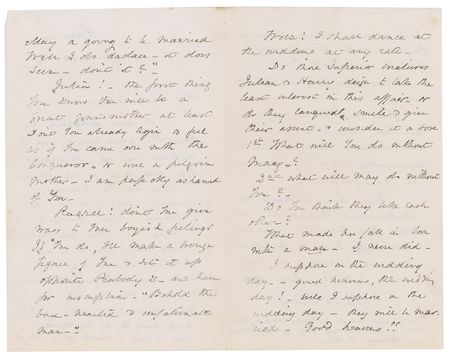 May a going to be married
Well I do declare - it does
seem - don't it? -
Julia! - the first thing
you know you will be a
Great Grandmother at least
Don't you already begin to feel
as if you came over with the
Conqueror - or were a pilgrim
Mother - I am perfectly ashamed
of you -
Russel! don't you give
way to your boyish feelings
If you do, I'll make a bronze
figure of you & set it up
opposite Peabody's - and have
for inscription - "Behold the
base - hearted & unfortunate
man -"
Well! I shall dance at
the wedding at any rate -
Do those Superior creatures
Julian & Harry deign to take the
least interest in this affair - or
do they languidly smile & give
their assent - & consider it a bore
1st What will you do without
May - ?
2nd what will May do without
you? -
Do you think they like each
other - ?
What made her fall in love
with a man - I never did -
I suppose on the wedding
day - good heavens, the wedding
day! - well I suppose on the
wedding day - they will be mar-
ried - Good heavens!!